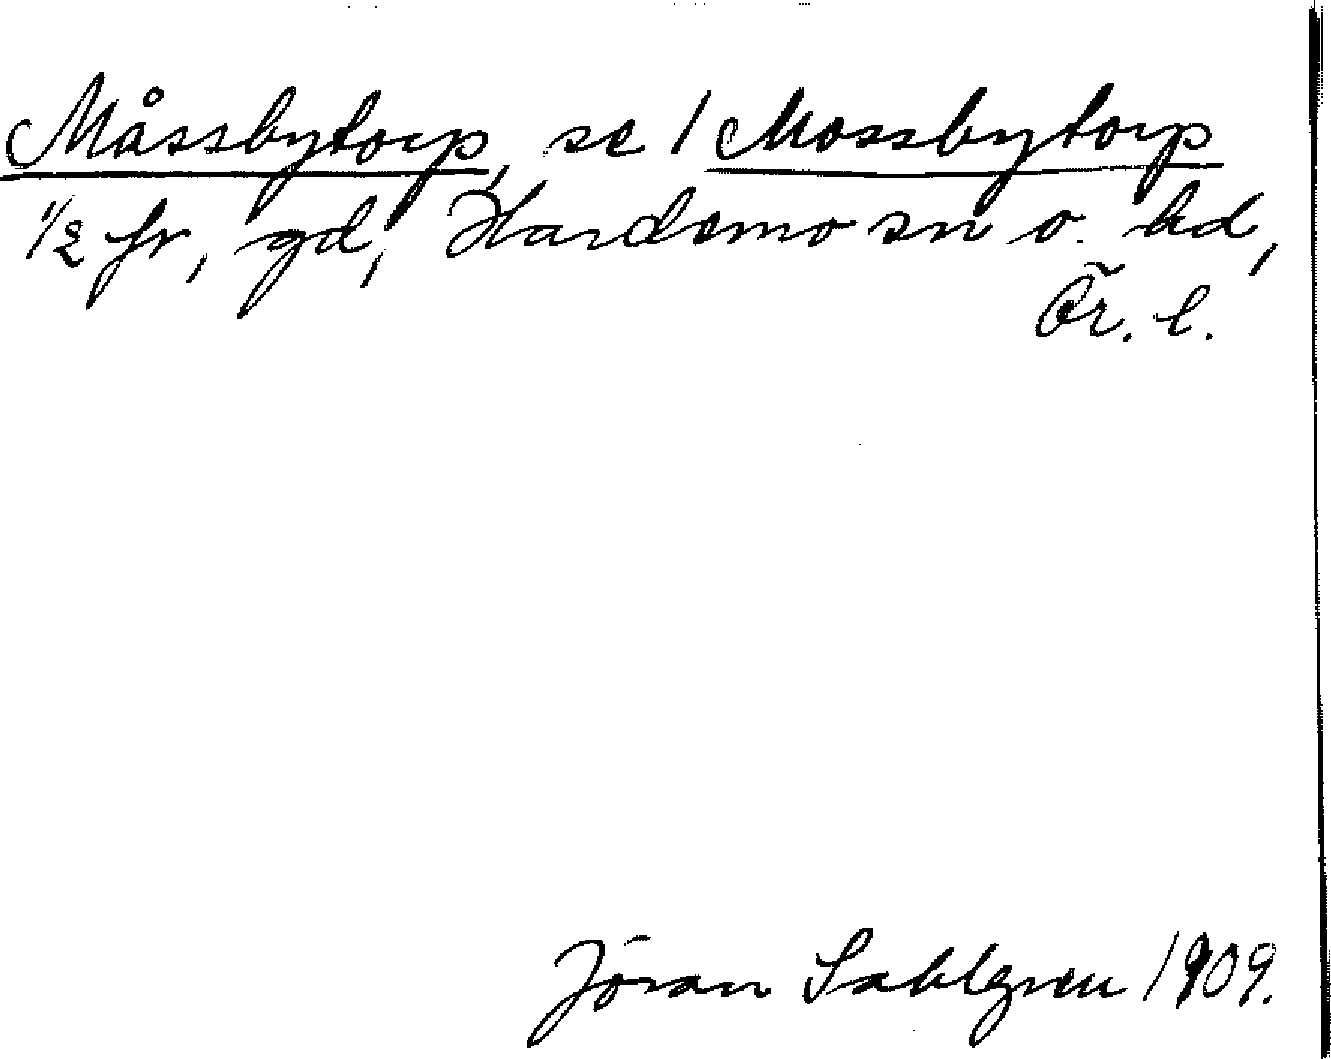 Måssbytorp, se / Mossbytorp
1/2 fr, gd, Hardemo sn o. hd,
Ör. l.
Jöran Sahlgren 1909.